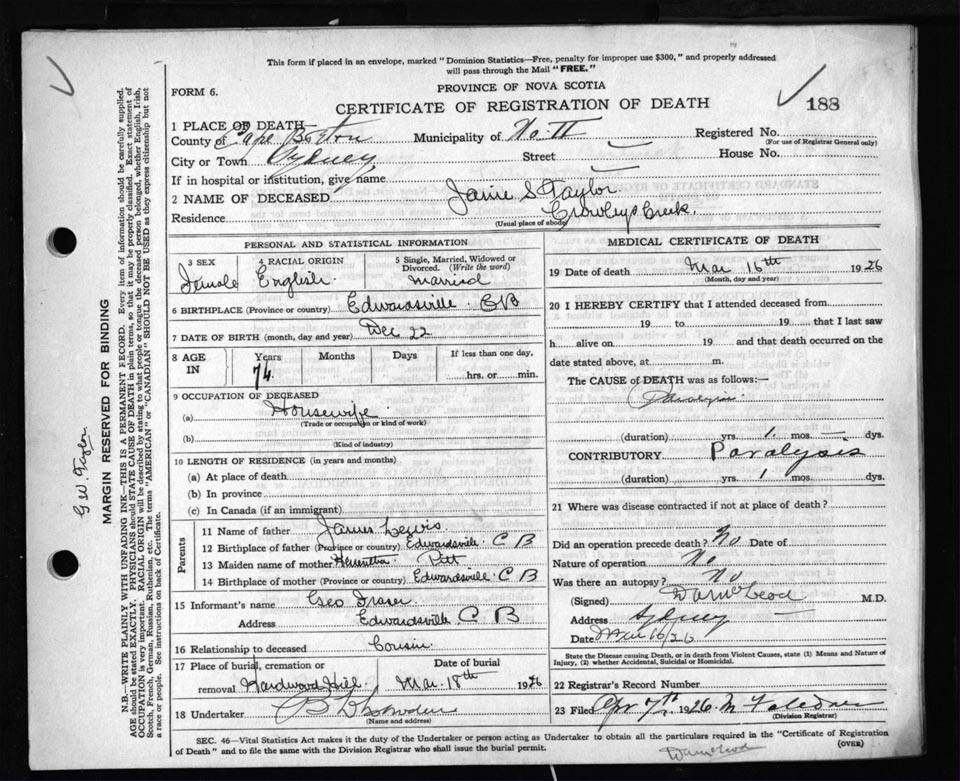 This form if placed in an envelope, marked "Dominion Statistics—Free, penalty for improper use $300," and properly addressed
will pass through the Mail "FREE."
FORM 6.
PROVINCE OF NOVA SCOTIA
CERTIFICATE OF REGISTRATION OF DEATH
188
1 PLACE OF DEATH
County of Cape Breton Municipality of No. II Registered No.
(For use of Registrar General only)
City or Town Sydney Street House No.
If in hospital or institution, give name
2 NAME OF DECEASED Janie S Taylor
Residence Crowleys Creek.
(Usual place of abode)
PERSONAL AND STATISTICAL INFORMATION
3 SEX Female
4 RACIAL ORIGIN English
5 Single, Married, Widowed or Divorced. (Write the word) Married
6 BIRTHPLACE (Province or country) Edwardsville CB
7 DATE OF BIRTH (month, day and year) Dec 22
8 AGE IN Years 74 Months Days If less than one day, hrs. or min.
9 OCCUPATION OF DECEASED
(a) Housewife
(Trade or occupation or kind of work)
(b)
(Kind of industry)
10 LENGTH OF RESIDENCE (in years and months)
(a) At place of death
(b) In province
(c) In Canada (if an immigrant)
Parents
11 Name of father James Lewis
12 Birthplace of father (Province or country) Edwardsville C B
13 Maiden name of mother
14 Birthplace of mother (Province or country) Edwardsville C B
15 Informant's name Geo Fraser
Address Edwardsville C B
16 Relationship to deceased Cousin
17 Place of burial, cremation or removal Hardwood Hill
Date of burial Mar. 18th 1926
18 Undertaker
(Name and address)
MEDICAL CERTIFICATE OF DEATH
19 Date of death Mar 16th 1926
(Month, day and year)
20 I HEREBY CERTIFY that I attended deceased from
19 to 19 that I last saw
h alive on 19 and that death occurred on the
date stated above, at m.
The CAUSE OF DEATH was as follows:—
(duration) yrs. 1 mos. dys.
CONTRIBUTORY Paralysis
(duration) yrs. 1 mos. dys.
21 Where was disease contracted if not at place of death?
Did an operation precede death? No Date of
Nature of operation No
Was there an autopsy? No
(Signed) D A McLeod M.D.
Address Sydney
Date Mar 16/26
State the Disease causing Death, or in death from Violent Causes, state (1) Means and Nature of
Injury, (2) whether Accidental, Suicidal or Homicidal.
22 Registrar's Record Number
23 Filed Apr 7th 1926
(Division Registrar)
SEC. 46—Vital Statistics Act makes it the duty of the Undertaker or person acting as Undertaker to obtain all the particulars required in the "Certificate of Registration
of Death" and to file the same with the Division Registrar who shall issue the burial permit.
(OVER)
D A McLeod
MARGIN RESERVED FOR BINDING
N.B.—WRITE PLAINLY WITH UNFADING INK—THIS IS A PERMANENT RECORD. Every item of information should be carefully supplied.
AGE should be stated EXACTLY. PHYSICIANS should STATE CAUSE OF DEATH in plain terms, so that it may be properly classified. Exact statement of
OCCUPATION is very important. RACIAL ORIGIN will be described by stating to what people or tongue the deceased person belonged, whether English, Irish,
Scotch, French, German, Russian, Ruthenian, etc. The terms "AMERICAN" "CANADIAN" SHOULD NOT BE USED as they express citizenship but not
a race or people. See instructions on back of Certificate.